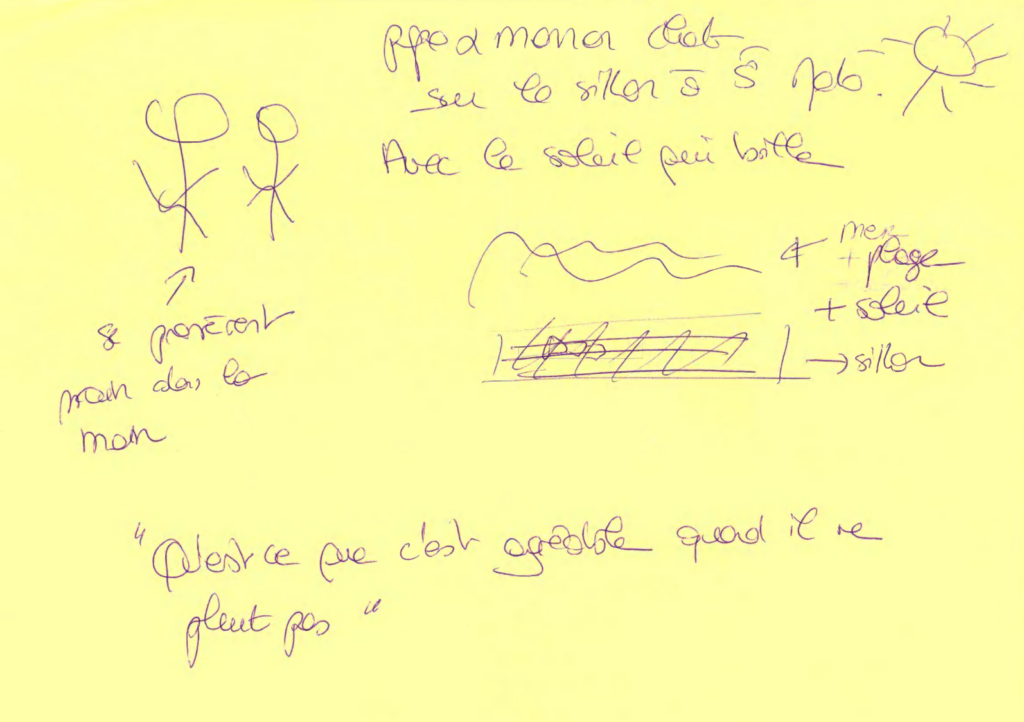 papa & maman chat
sur le sillon à S Malo.
Avec le soleil qui brille
mer
+ plage
+ soleil
→ sillon
se promènent
main dans la
main
"Qu'est ce que c'est agréable quand il ne
pleut pas"